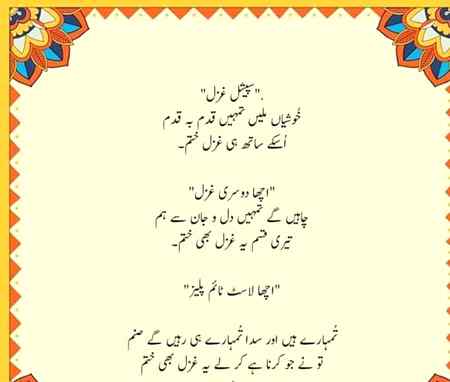 ."سپیشل غزل"
خُوشیاں ملیں تمہیں قدم بہ قدم
اُسکے ساتھ ہی غزل ختم۔
"اچھا دوسری غزل"
چاہیں گے تمہیں دل و جان سے ہم
تیری قسم یہ غزل بھی ختم۔
"اچھا لاسٹ ٹائم پلیز"
تُمہارے ہیں اور سدا تُمہارے ہی رہیں گے صنم
تو نے جو کرنا ہے کر لے یہ غزل بھی ختم